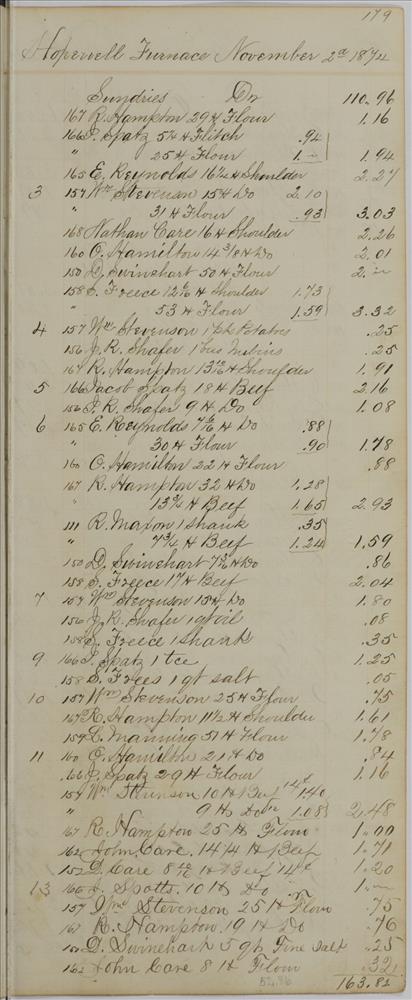 179
Hopewell Furnace November 2d 1874
Sundries Dr 110.96
167 R. Hampton 29 # Flour 1.16
166 J. Spatz 5¼ # Flitch .94
" 25 # Flour 1.— 1.94
165 E. Reynolds 16½ # Shoulder 2.27
3 157 Wm Stevenson 15 # Do 2.10
" 31 # Flour .93 3.03
168 Nathan Care 16 # Shoulder 2.26
160 O. Hamilton 14 3/8 # Do 2.01
150 D. Swinehart 50 # Flour 2.—
158 S. Freece # Shoulder 1.73
" 53 # Flour 1.59 3.32
4 157 Wm Stevenson 1 pk Potatoes .25
156 J. R. Shafer 1 bus .25
167 R. Hampton # Shoulder 1.91
5 166 Jacob Spatz 18 # Beef 2.16
156 J. R. Shafer 9 # Do 1.08
6 165 E. Reynolds # Do .88
" 30 # Flour .90 1.78
160 O. Hamilton 22 # Flour .88
167 R. Hampton 32 # Do 1.28
" 13¾ # Beef 1.65 2.93
111 R. Maxon 1 shank .35
" 7¾ # Beef 1.24 1.59
150 D. Swinehart # Do .86
158 S. Freece 17 # Beef 2.04
7 157 Wm Stevenson 15 # Do 1.80
156 J. R. Shafer 1 qt oil .08
158 S. Freece 1 shank .35
9 166 J. Spatz 1 1.25
158 S. Frees 1 qt salt .05
10 157 Wm Stevenson 25 # Flour .75
167 R. Hampton 11½ # Shoulder 1.61
159 L. Manning 51 # Flour 1.78
11 160 O. Hamilton 21 # Do .84
166 J. Spatz 29 # Flour 1.16
157 Wm Stevenson 10 # Beef 14¢ 1.40
" 9 # Do 1.08 2.48
167 R. Hampton 25 # Flour 1.00
162 John Care 14¼ # Beef 1.71
152 D. Care # Beef 14¢ 1.20
13 166 J. Spotts. 10 # Do 1.—
157 Wm Stevenson 25 # Flour .75
167 R. Hampton. 19 # Do .76
150 D. Swinehart 5 qts Fine Salt .25
162 John Care 8 # Flour .32
52.86
163.82